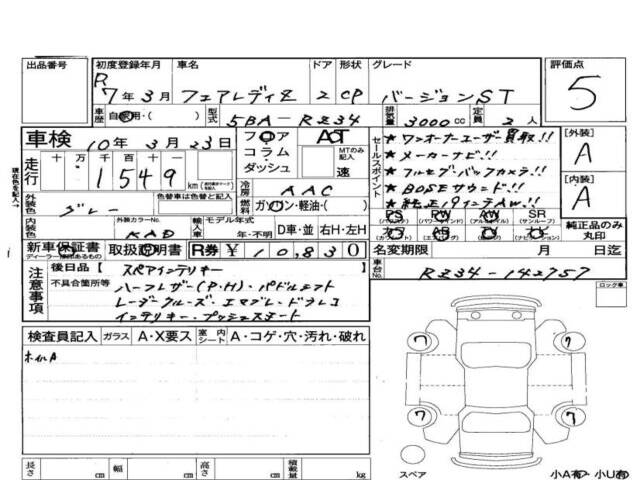 出品番号 初度登録年月 車名 ドア 形状 グレード 評価点
R7年3月 フェアレディZ 2 CP バージョンST 5
車歴 自家用・( ) 型式 5BA-RZ34 排気量 3000cc 定員 2人
車検 10年3月23日 フロア AT
コラム・ダッシュ MTのみ記入 速
走行 十 万 千 百 十 一
1549 km
セールスポイント
★ワンオーナーユーザー買取!!
★メーカーナビ!!
★フルセグバックカメラ!!
★BOSEサウンド!!
★純正19インチAW!!
[外装] A
[内装] A
現在色を記入→
外装色 グレー 色替車は色替と記入
冷房 AAC
燃料 ガソリン・軽油・( )
PS PW AW SR
(パワステ) (パワーウィンド) (アルミホイル) (サンルーフ)
純正品のみ丸印
内装色 外装カラーNo. KAD 輸入車 モデル年式 年・不明 D車・並 右H・左H
新車保証書 ディーラー捺印あるもの 取扱説明書 R券 ¥10,830
名変期限 月 日迄
注意事項
後日品 [ スペアインテリキー ]
不具合箇所等 ハーフレザー(P.H)・パドルシフト
レーダークルーズ・エマブレ・ドラレコ
インテリキー・プッシュスタート
車台No. RZ34-142757
ロック車
検査員記入 ガラス A・X要ス 室内シート A・コゲ・穴・汚れ・破れ
ホイルA
7 7
7 7
長さ cm 幅 cm 高さ cm 積載量 kg
スペア 小A有 小U有